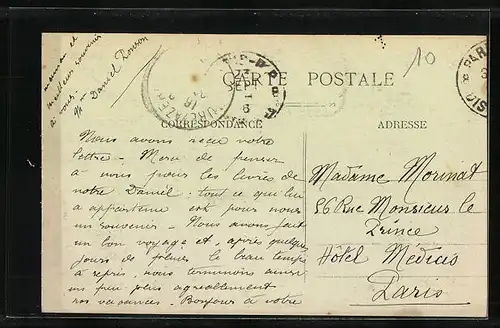 maman et
meilleur souvenir
à vous.
M Daniel
10
CARTE POSTALE
CORRESPONDANCE
ADRESSE
SEPT
PAR
Nous avons reçu votre
lettre - Merci de penser
à nous pour les livres de
notre Daniel. tout ce qui lui
a appartenu est pour nous
un souvenir - Nous avons fait
un bon voyage et, après quelques
jours de pluies le beau temps
a repris, nous terminons ainsi
un peu plus agréablement
nos vacances - Bonjour à votre
Madame Morinat
56 Rue Monsieur le
Prince
Hôtel Médicis
Paris